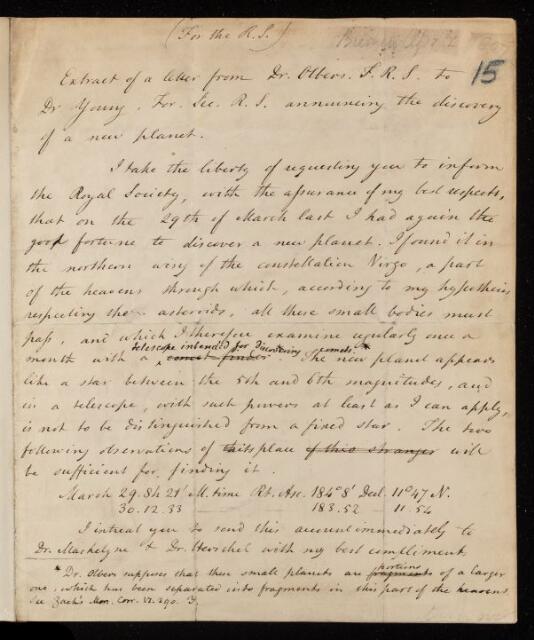 (For the R.S.)
15
Extract of a letter from Dr. Olbers. F.R.S. to
Dr Young. For. Sec. R.S. announcing the discovery
of a new planet.
I take the liberty of requesting you to inform
the Royal Society, with the assurance of my best respects,
that on the 29th of March last I had again the
good fortune to discover a new planet. I found it in
the northern wing of the constellation Virgo, a part
of the heavens through which, according to my hypothesis
respecting the asteroids, all these small bodies must
pass, and which I therefore examine regularly once a
telescope intended for discovering comets.*
month with a comet finder. The new planet appears
like a star between the 5th and 6th magnitudes, and
in a telescope, with such powers at least as I can apply,
is not to be distinguished from a fixed star. The two
following observations of its place of this stranger will
be sufficient for finding it.
March 29. 8h 21' M. time Rt. Asc. 184° 8' Decl. 11° 47 N.
30. 12. 33 — 183. 52 — 11. 54
I intreat you to send this account immediately to
Dr. Maskelyne & Dr. Herschel with my best compliment
portions
* Dr. Olbers supposes that these small planets are fragments of a larger
one, which has been separated into fragments in this part of the heavens
See Zach's Mon. Corr. VI. 290. Y.